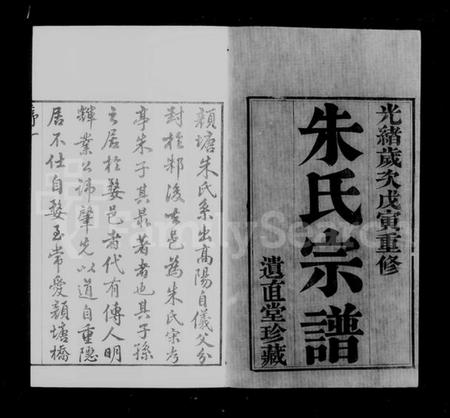 光緒歲次戊寅重修
朱氏宗譜
遺直堂珍藏
顏塘朱氏系出高陽自儀父分
封於邾後世邑為朱氏宋考
亭朱子其最著者也其子孫
之居於婺邑者代有傳人明
輝業公諱肇先以道自重隱
居不仕自婺至常愛顏塘橋
序一
FamilySearch